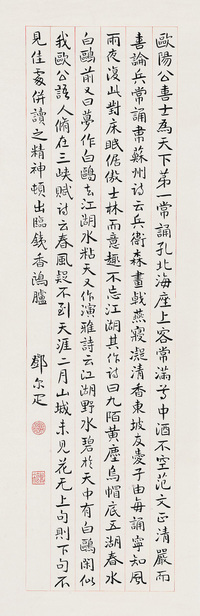 歐陽公喜士為天下第一常誦孔北海座上客常滿尊中酒不空范文正清嚴而
喜論兵常誦韋蘇州詩云兵衛森畫戟燕寢凝清香東坡友愛子由每誦寧知風
雨夜復此對床眠倨傲士林而意趣不忘江湖其作詩曰九陌黃塵烏帽底五湖春水
白鷗前又曰夢作白鷗去江湖水粘天又作演雅詩云江湖野水碧於天中有白鷗閑似
我歐公語人脩在三峽賦詩云春風疑不到天涯二月山城未見花无上句則下句不
見佳處併讀之精神頓出臨錢香鴻臚
鄧尔疋